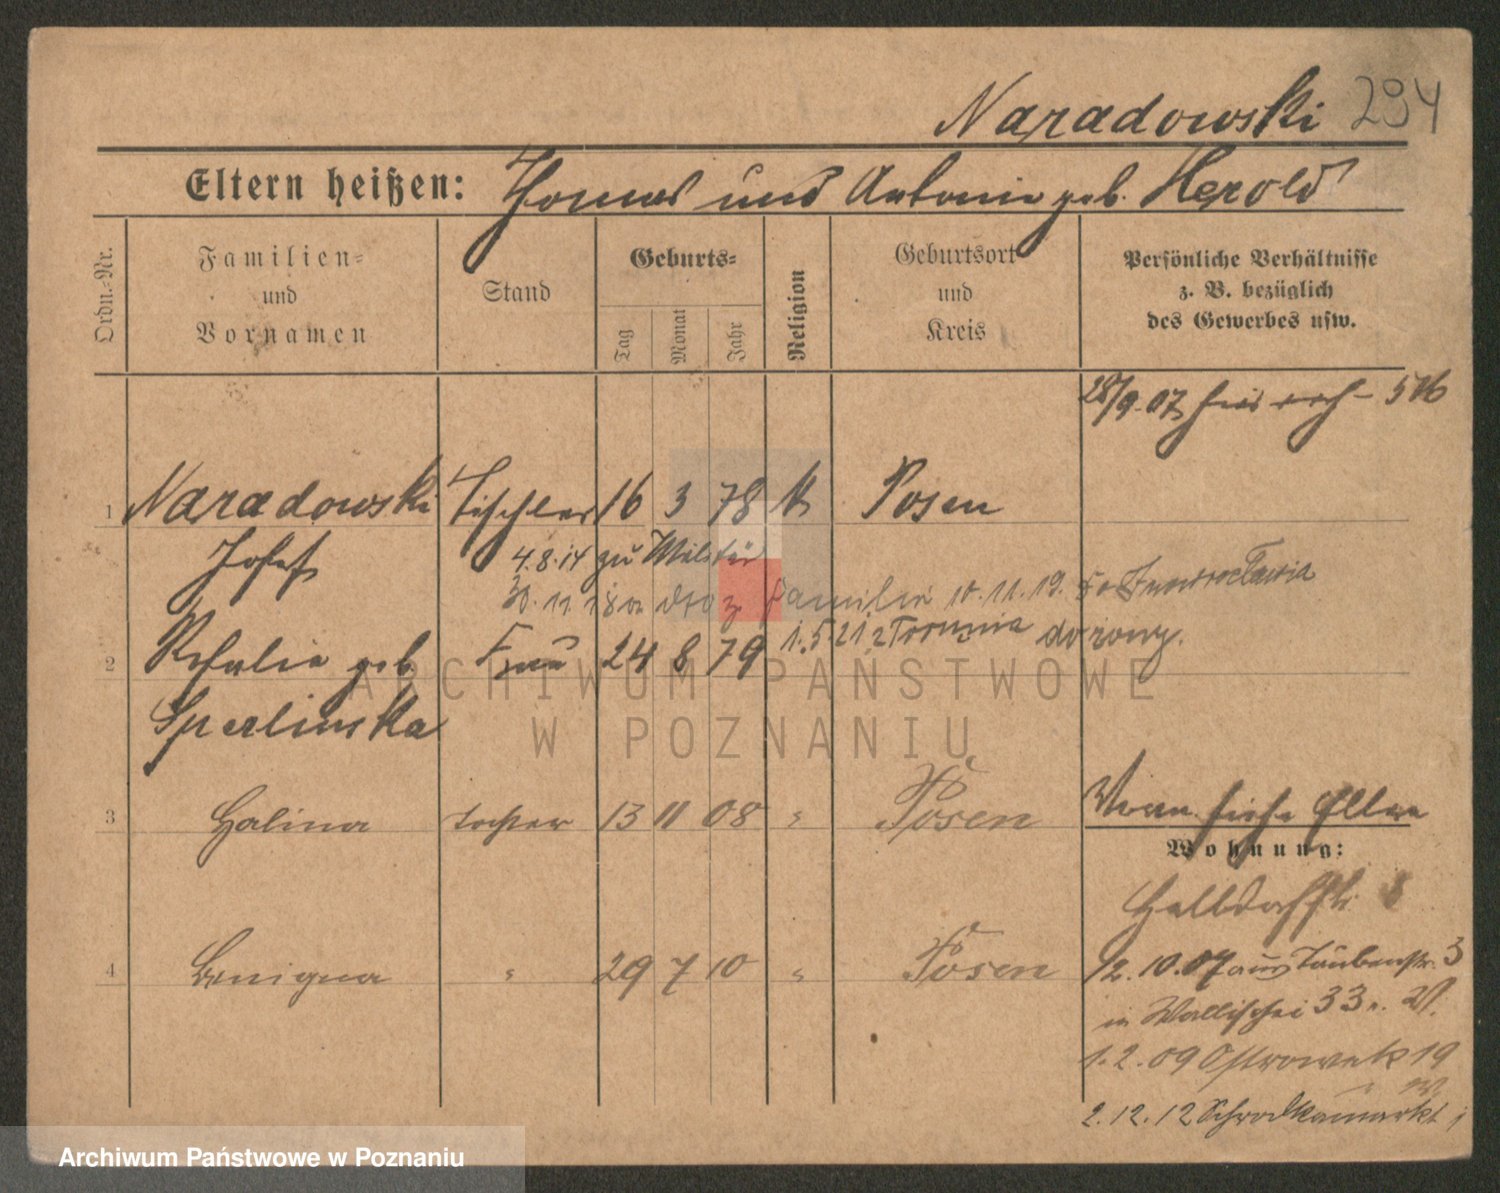 Naradowski 294
Eltern heißen: Thomas und Antonie geb. Herold
Ordn.-Nr.
Familien- und Vornamen
Stand
Geburts-
Tag
Monat
Jahr
Religion
Geburtsort und Kreis
Persönliche Verhältnisse
z. B. bezüglich
des Gewerbes usw.
28/9.07
1 Naradowski Tischler 16 3 78 k Posen
Josef
4.8.14 zu Militär
30.11.18 Familie 10.11.19. do Inowrocławia
1.5.21 z Torunia do żony.
2 geb. Frau 24 8 79
Sperlinska
3 Halina Tochter 13 11 08 " Posen
siehe
Wohnung:
Halbdorfstr. 8
4 Benigna " 29 7 10 " Posen
2.10.07 aus Taubenstr. 3
in Wallischei 33
1.2.09 Ostrowek 19
2.12.12 Schrodkamarkt
ARCHIWUM PAŃSTWOWE
W POZNANIU
Archiwum Państwowe w Poznaniu